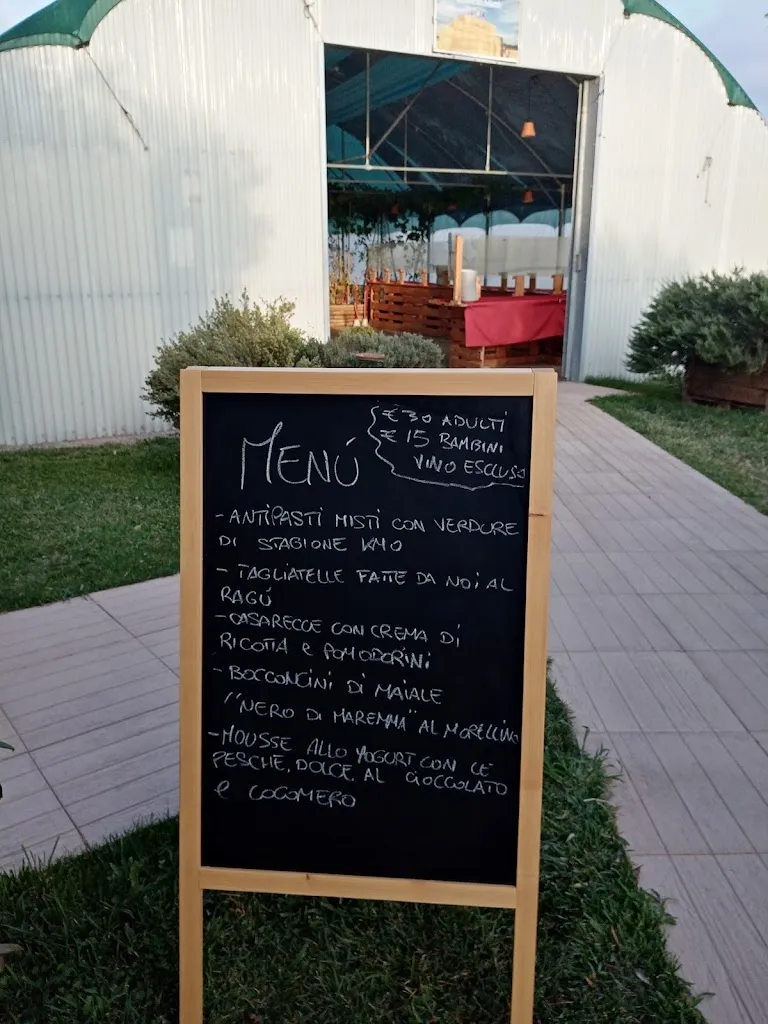 MENÚ
€ 30 ADULTI
€ 15 BAMBINI
VINO ESCLUSO
- ANTIPASTI MISTI CON VERDURE
DI STAGIONE KM0
- TAGLIATELLE FATTE DA NOI AL
RAGÚ
- CASARECCE CON CREMA DI
RICOTTA E POMODORINI
- BOCCONCINI DI MAIALE
"NERO DI MAREMMA" AL MORELLINO
- MOUSSE ALLO YOGURT CON LE
PESCHE, DOLCE AL CIOCCOLATO
E COCOMERO